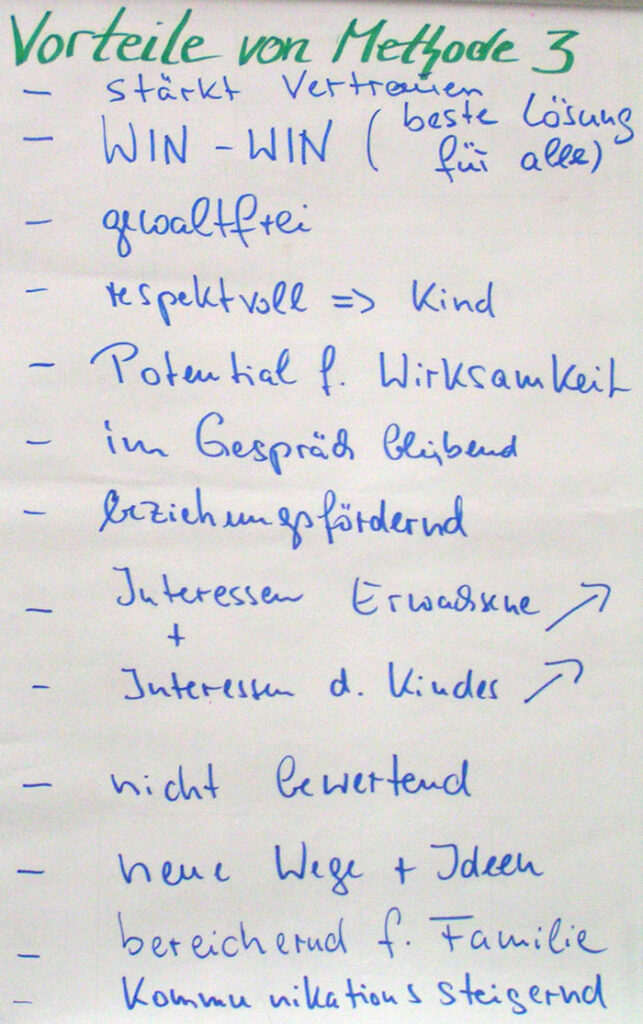 Vorteile von Methode 3
- stärkt Vertrauen
- WIN - WIN (beste Lösung
für alle)
- gewaltfrei
- respektvoll => Kind
- Potential f. Wirksamkeit
- im Gespräch bleibend
- erziehungsfördernd
- Interessen Erwachsene ↗
+
- Interessen d. Kindes ↗
- nicht bewertend
- neue Wege + Ideen
- bereichernd f. Familie
- Kommunikationssteigernd